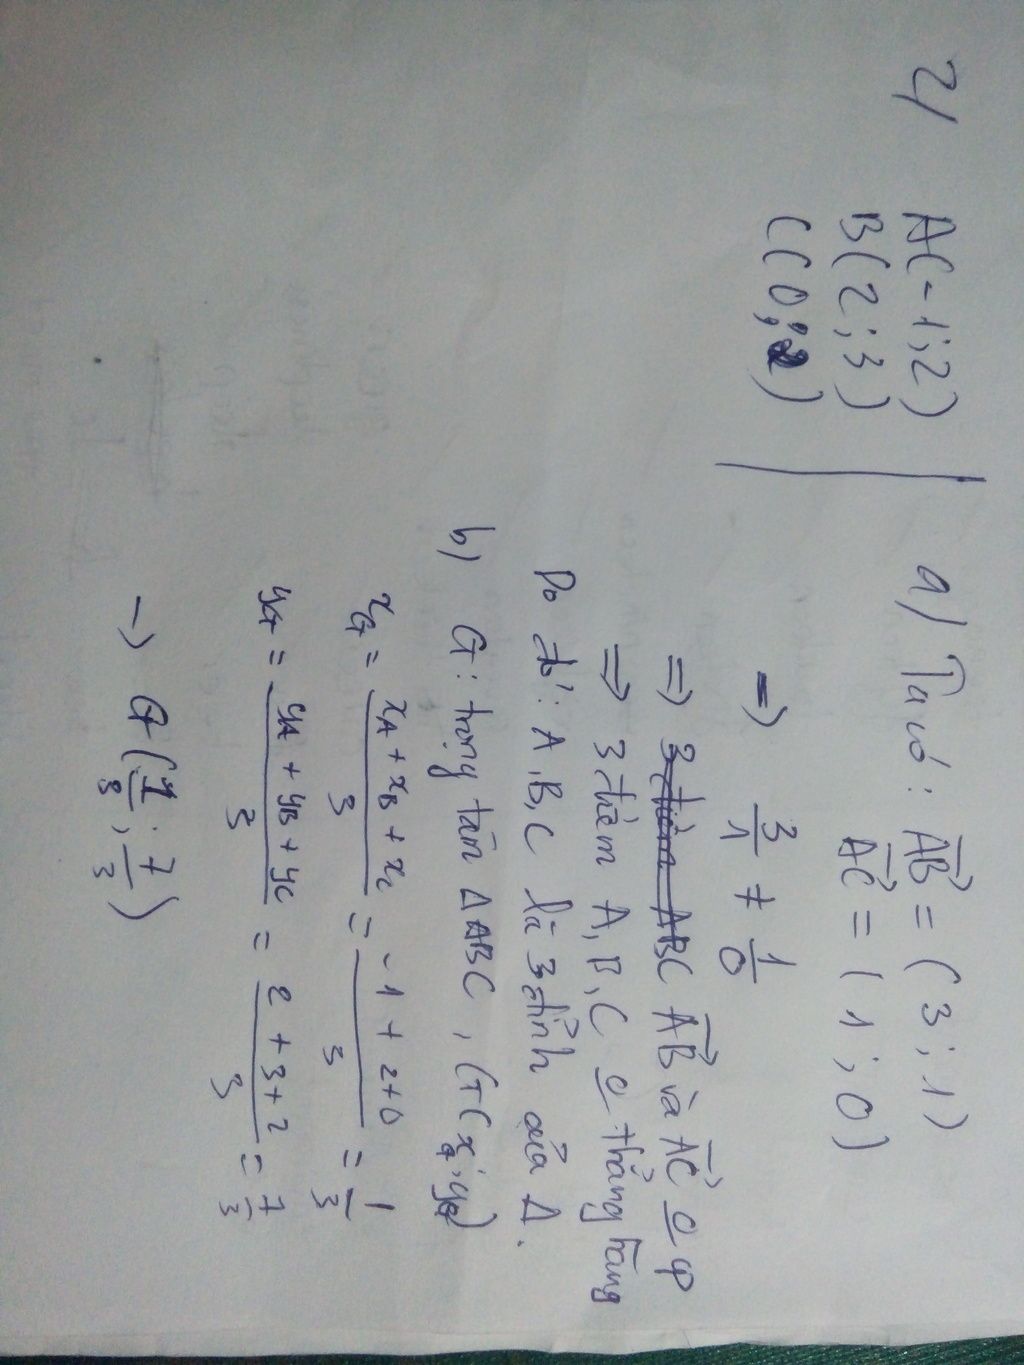 2/
A(-1;2)
B(2;3)
C(0;2)
a) Ta có: AB→ = (3;1)
AC→ = (1;0)
=> 3/1 ≠ 1/0
=> 3 điểm ABC AB→ và AC→ o cp
=> 3 điểm A,B,C o thẳng hàng
Do đó: A,B,C là 3 đỉnh của Δ.
b) G: trọng tâm ΔABC, G(xG;yG)
xG = (xA + xB + xC)/3 = (-1 + 2+0)/3 = 1/3
yG = (yA + yB + yC)/3 = (2 + 3+2)/3 = 7/3
-> G(1/3;7/3)